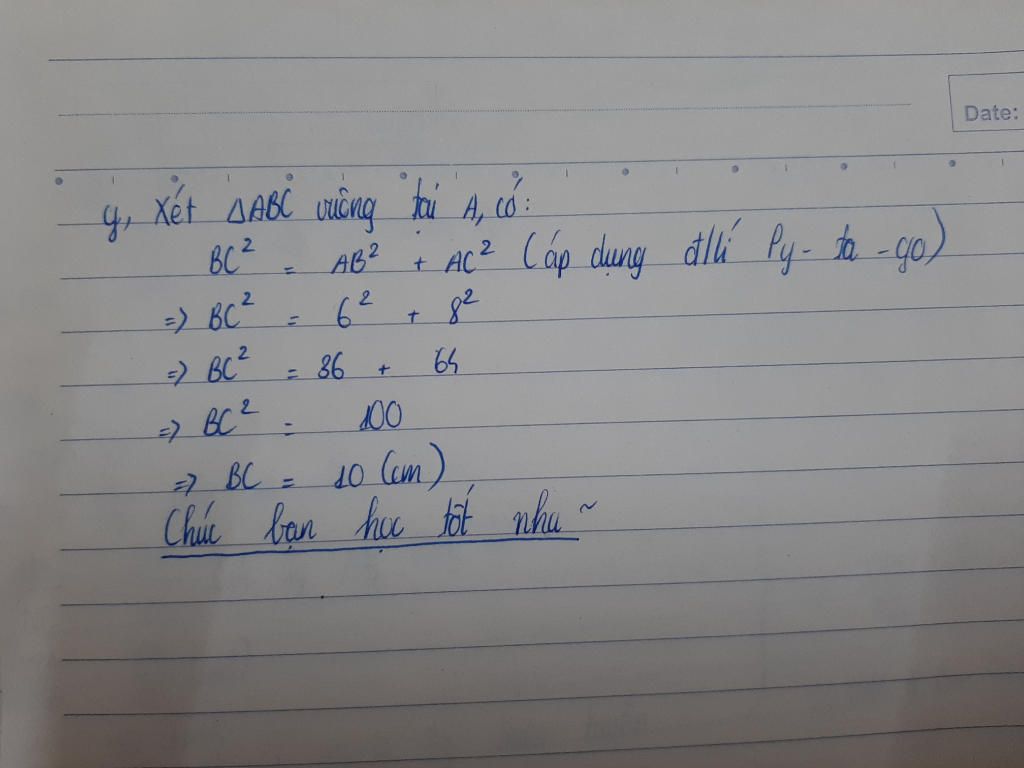 Date:
y, Xét ΔABC vuông tại A, có:
BC² = AB² + AC² (áp dụng đ/lí Py-ta-go)
=> BC² = 6² + 8²
=> BC² = 36 + 64
=> BC² = 100
=> BC = 10 (cm)
Chúc bạn học tốt nha ~